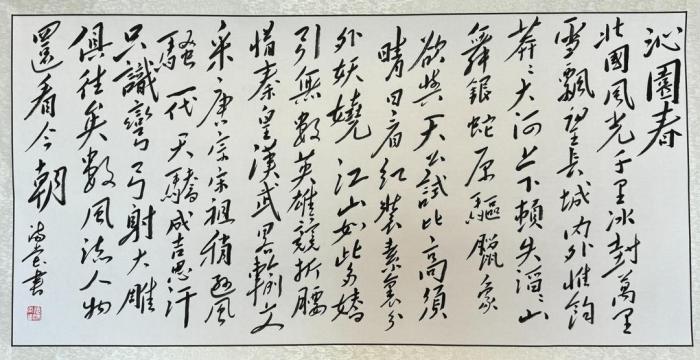 沁園春
北國風光千里冰封萬里
雪飄望長城内外惟餘
莽〻大河上下頓失滔〻山
舞銀蛇原驅臘象
欲與天公試比高須
晴日看紅裝素裹分
外妖嬈江山如此多嬌
引無數英雄競折腰
惜秦皇漢武略輸文
采唐宗宋祖稍遜風
騷一代天驕成吉思汗
只識彎弓射大雕
俱往矣數風流人物
還看今朝
書